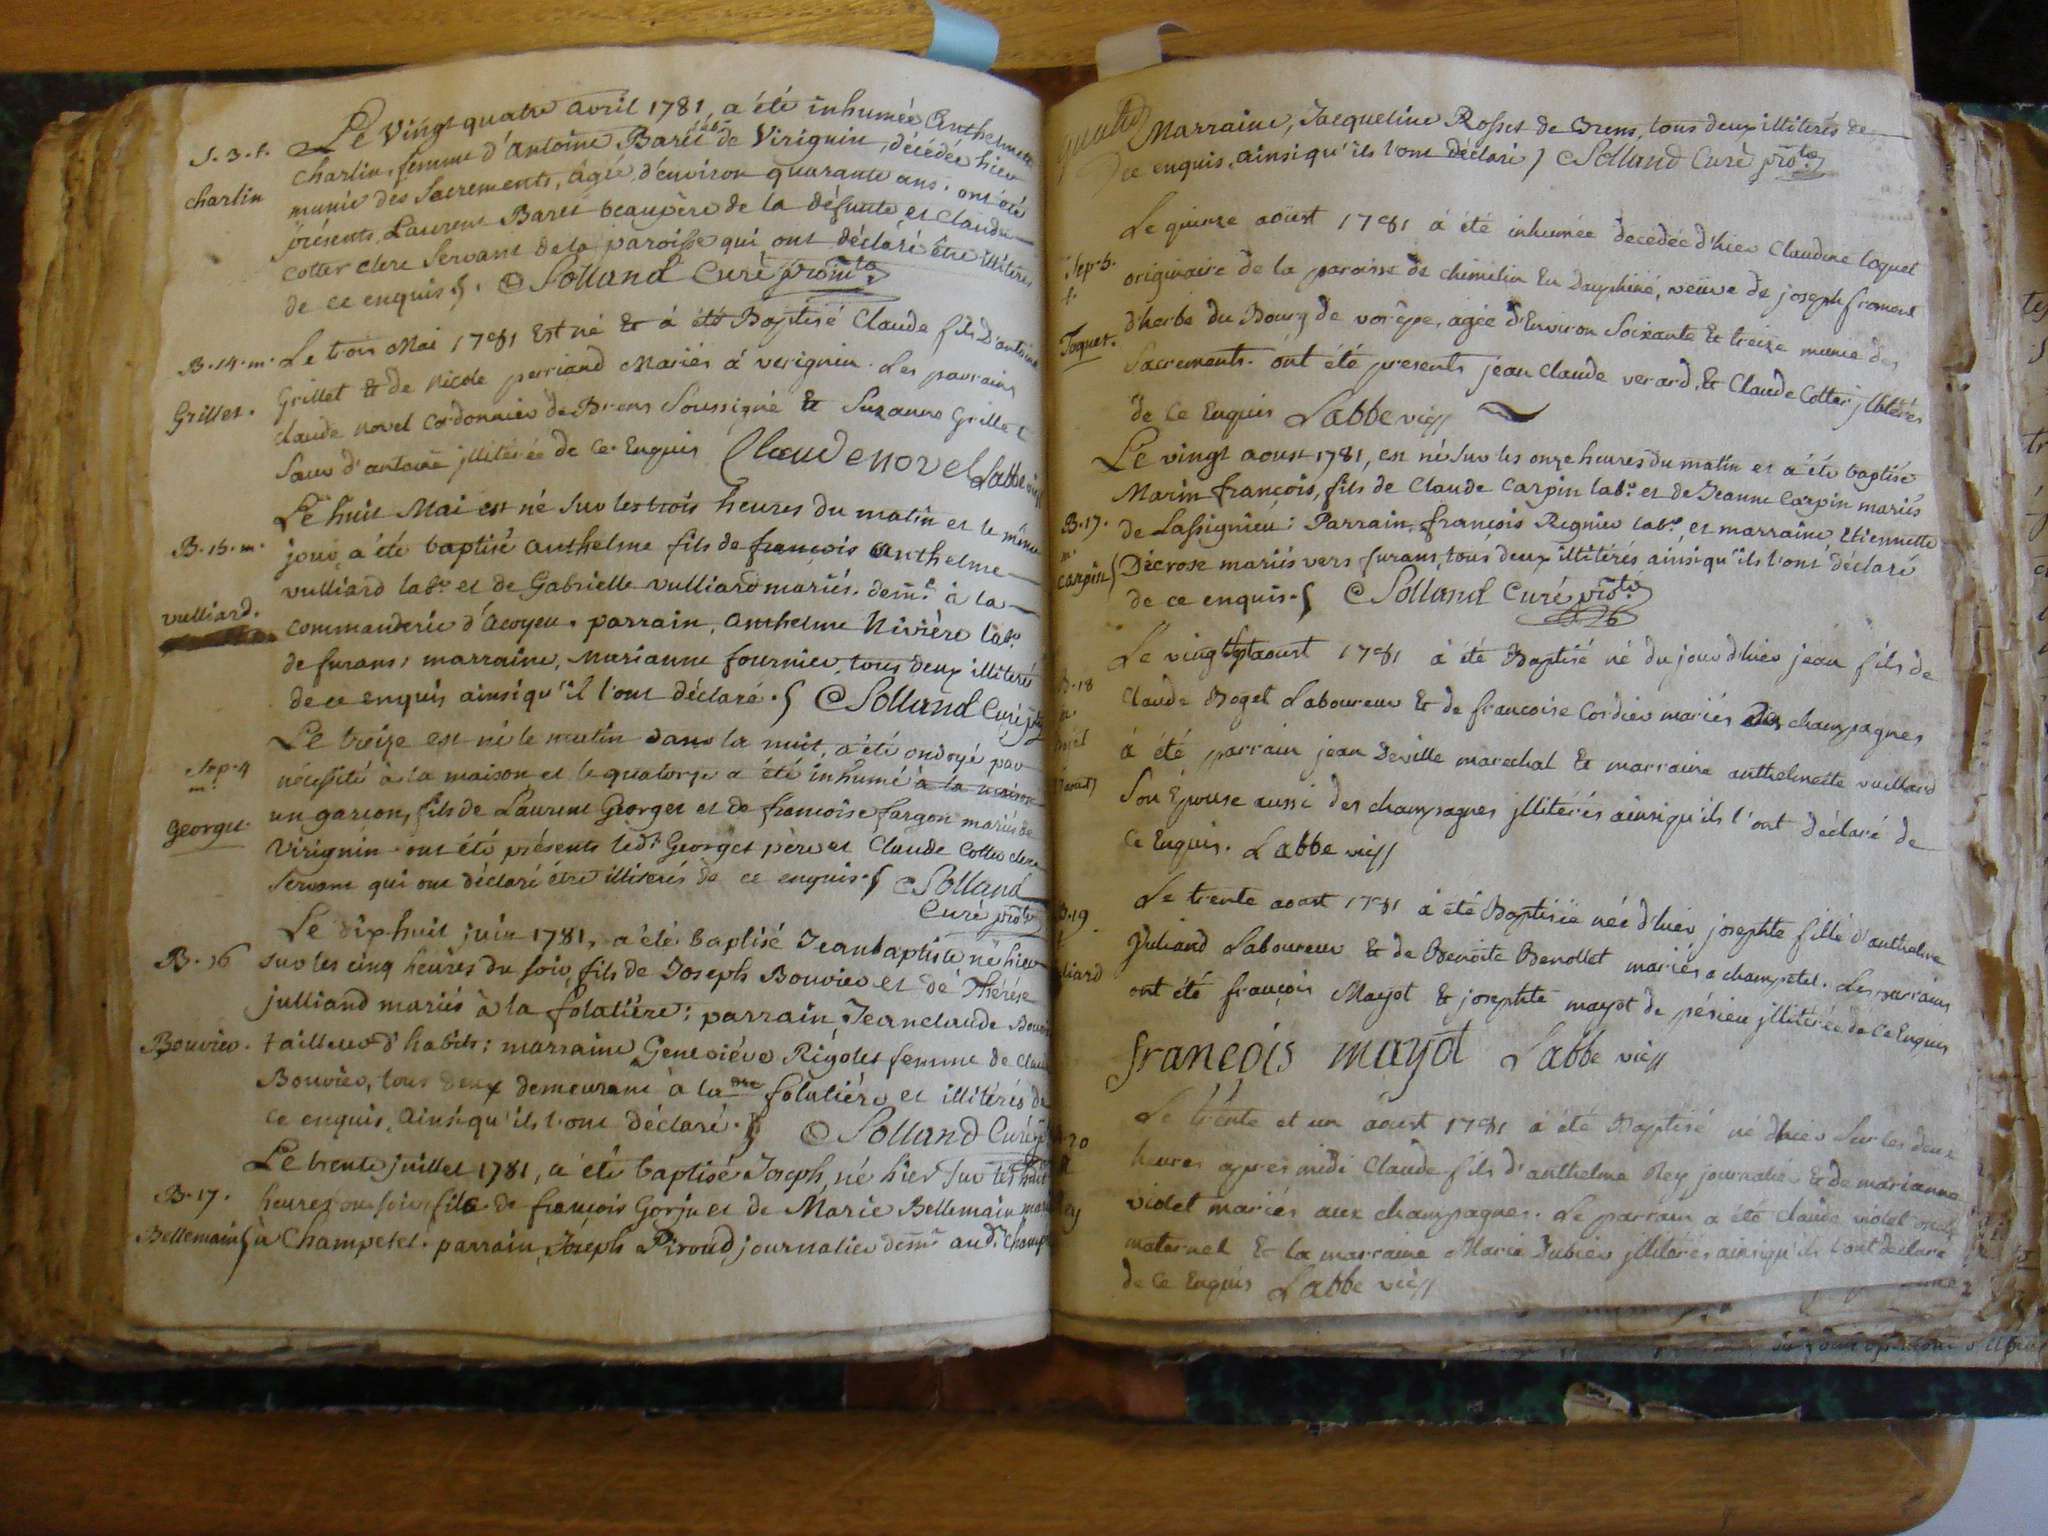 Le Vingt quatre avril 1781, a été inhumée Anthelmette
S. 3. f. charlin, femme d'Antoine Baret lab. de Virignin, décédée hier
charlin munie des Sacrements, âgée d'environ quarante ans. ont été
présents Laurent Baret beaupère de la défunte et Claude
Cotter clerc Servant de la paroisse qui ont déclaré être illitérés
de ce enquis. Solland Curé
B. 14. m. Le trois Mai 1781 Est né & a été Baptisé Claude fils D'antoine
Grillet & de Nicole perriand Mariés à verignin. Les parrains
Grillet. claude novel Cordonnier de Brens Soussigné & Suzanne Grillet
Sœur d'antoine jllitérée de Ce Enquis Claude novel Labbe
Le huit Mai est né sur les trois heures du matin et le même
B. 15. m. jour a été baptisé anthelme fils de françois anthelme
vulliard labr et de Gabrielle vulliard mariés. demt à la
vulliard. commanderie d'acoyeu. parrain, anthelme Nivière labr
de furans; marraine, marianne fournier, tous deux illiterés
de ce enquis ainsi qu'il l'ont déclaré. Solland Curé
Le treize est né le matin dans la nuit, a été ondoyé par
Sep. 4 m. nécessité à la maison et le quatorze a été inhumé à la maison
un garçon, fils de Laurent Georget et de françoise fargon mariés de
Georget. Virignin. ont été présents ledt Georget père et Claude Cotter clerc
servant qui ont déclaré être illiterés de ce enquis. Solland
Curé
Le dix huit juin 1781, a été baptisé Jeanbaptiste né hier
B. 16 sur les cinq heures du soir, fils de Joseph Bouvier et de Thérèse
julliand mariés à la folatière; parrain, Jeanclaude
Bouvier. tailleur d'habits; marraine Geneviéve Rigolet femme de
Bouvier, tous deux demeurant à la folatiére et illitérés de
ce enquis, ainsi qu'ils l'ont déclaré. Solland Curé
Le trente juillet 1781, a été baptisé Joseph, né hier sur les huit
B. 17. heures du soir, fils de françois Gorju et de Marie Bellemain
Bellemain à Champetel. parrain, Joseph Piroud journalier demt aud.
Marraine, Jacqueline Rosset de Brens, tous deux illiterés de
ce enquis, ainsi qu'ils l'ont déclaré Solland Curé
Le quinze aoust 1781 a été inhumée decedée d'hier Claudine loquet
Sep. 5. f. originaire de la paroisse de chimilin En Dauphiné, veüve de joseph froment
d'herbe du Bourg de vorêpe, agée d'Environ Soixante & treize munie des
Toquet. Sacrements. ont été presents jean claude verard, & Claude Cotter jllitérés
de Ce Enquis Labbe
Le vingt aoust 1781, est né sur les onze heures du matin et a été baptisé
Marin françois, fils de Claude Carpin labr et de Jeanne Carpin mariés
B. 17. m. de Lassignieu; Parrain, françois Regnier labr, et marraine Etiennette
carpin Décrose mariés vers furans, tous deux illitérés ainsi qu'ils l'ont déclaré
de ce enquis. Solland Curé
Le vingt sept aoust 1781 a été Baptisé né du jour d'hier jean fils de
B. 18 Claude Boget Laboureur & de françoise Cordier mariés champagnes
à été parrain jean Deville marechal & marraine anthelmette vulliard
Son Epouse aussi des champagnes jllitérés ainsi qu'ils l'ont déclaré de
Ce Enquis. Labbe
Le trente aoust 1781 a été Baptisée née d'hier josephte fille d'anthelme
B. 19 Juliand Laboureur & de Benoite Benollet mariés a champetel. Les parrains
ont été françois Mayot & josephte mayot de pésieu jllitérée de Ce Enquis
françois mayot Labbe
Le trente et un aoust 1781 a été Baptisé né d'hier sur les deux
20 heures après midi Claude fils d'anthelme Rey journalier & de marianne
violet mariés aux champagnes. Le parrain a été claude violet oncle
maternel & la marraine Marie Dubier jllitérés ainsi qu'ils l'ont déclaré
de Ce Enquis Labbe